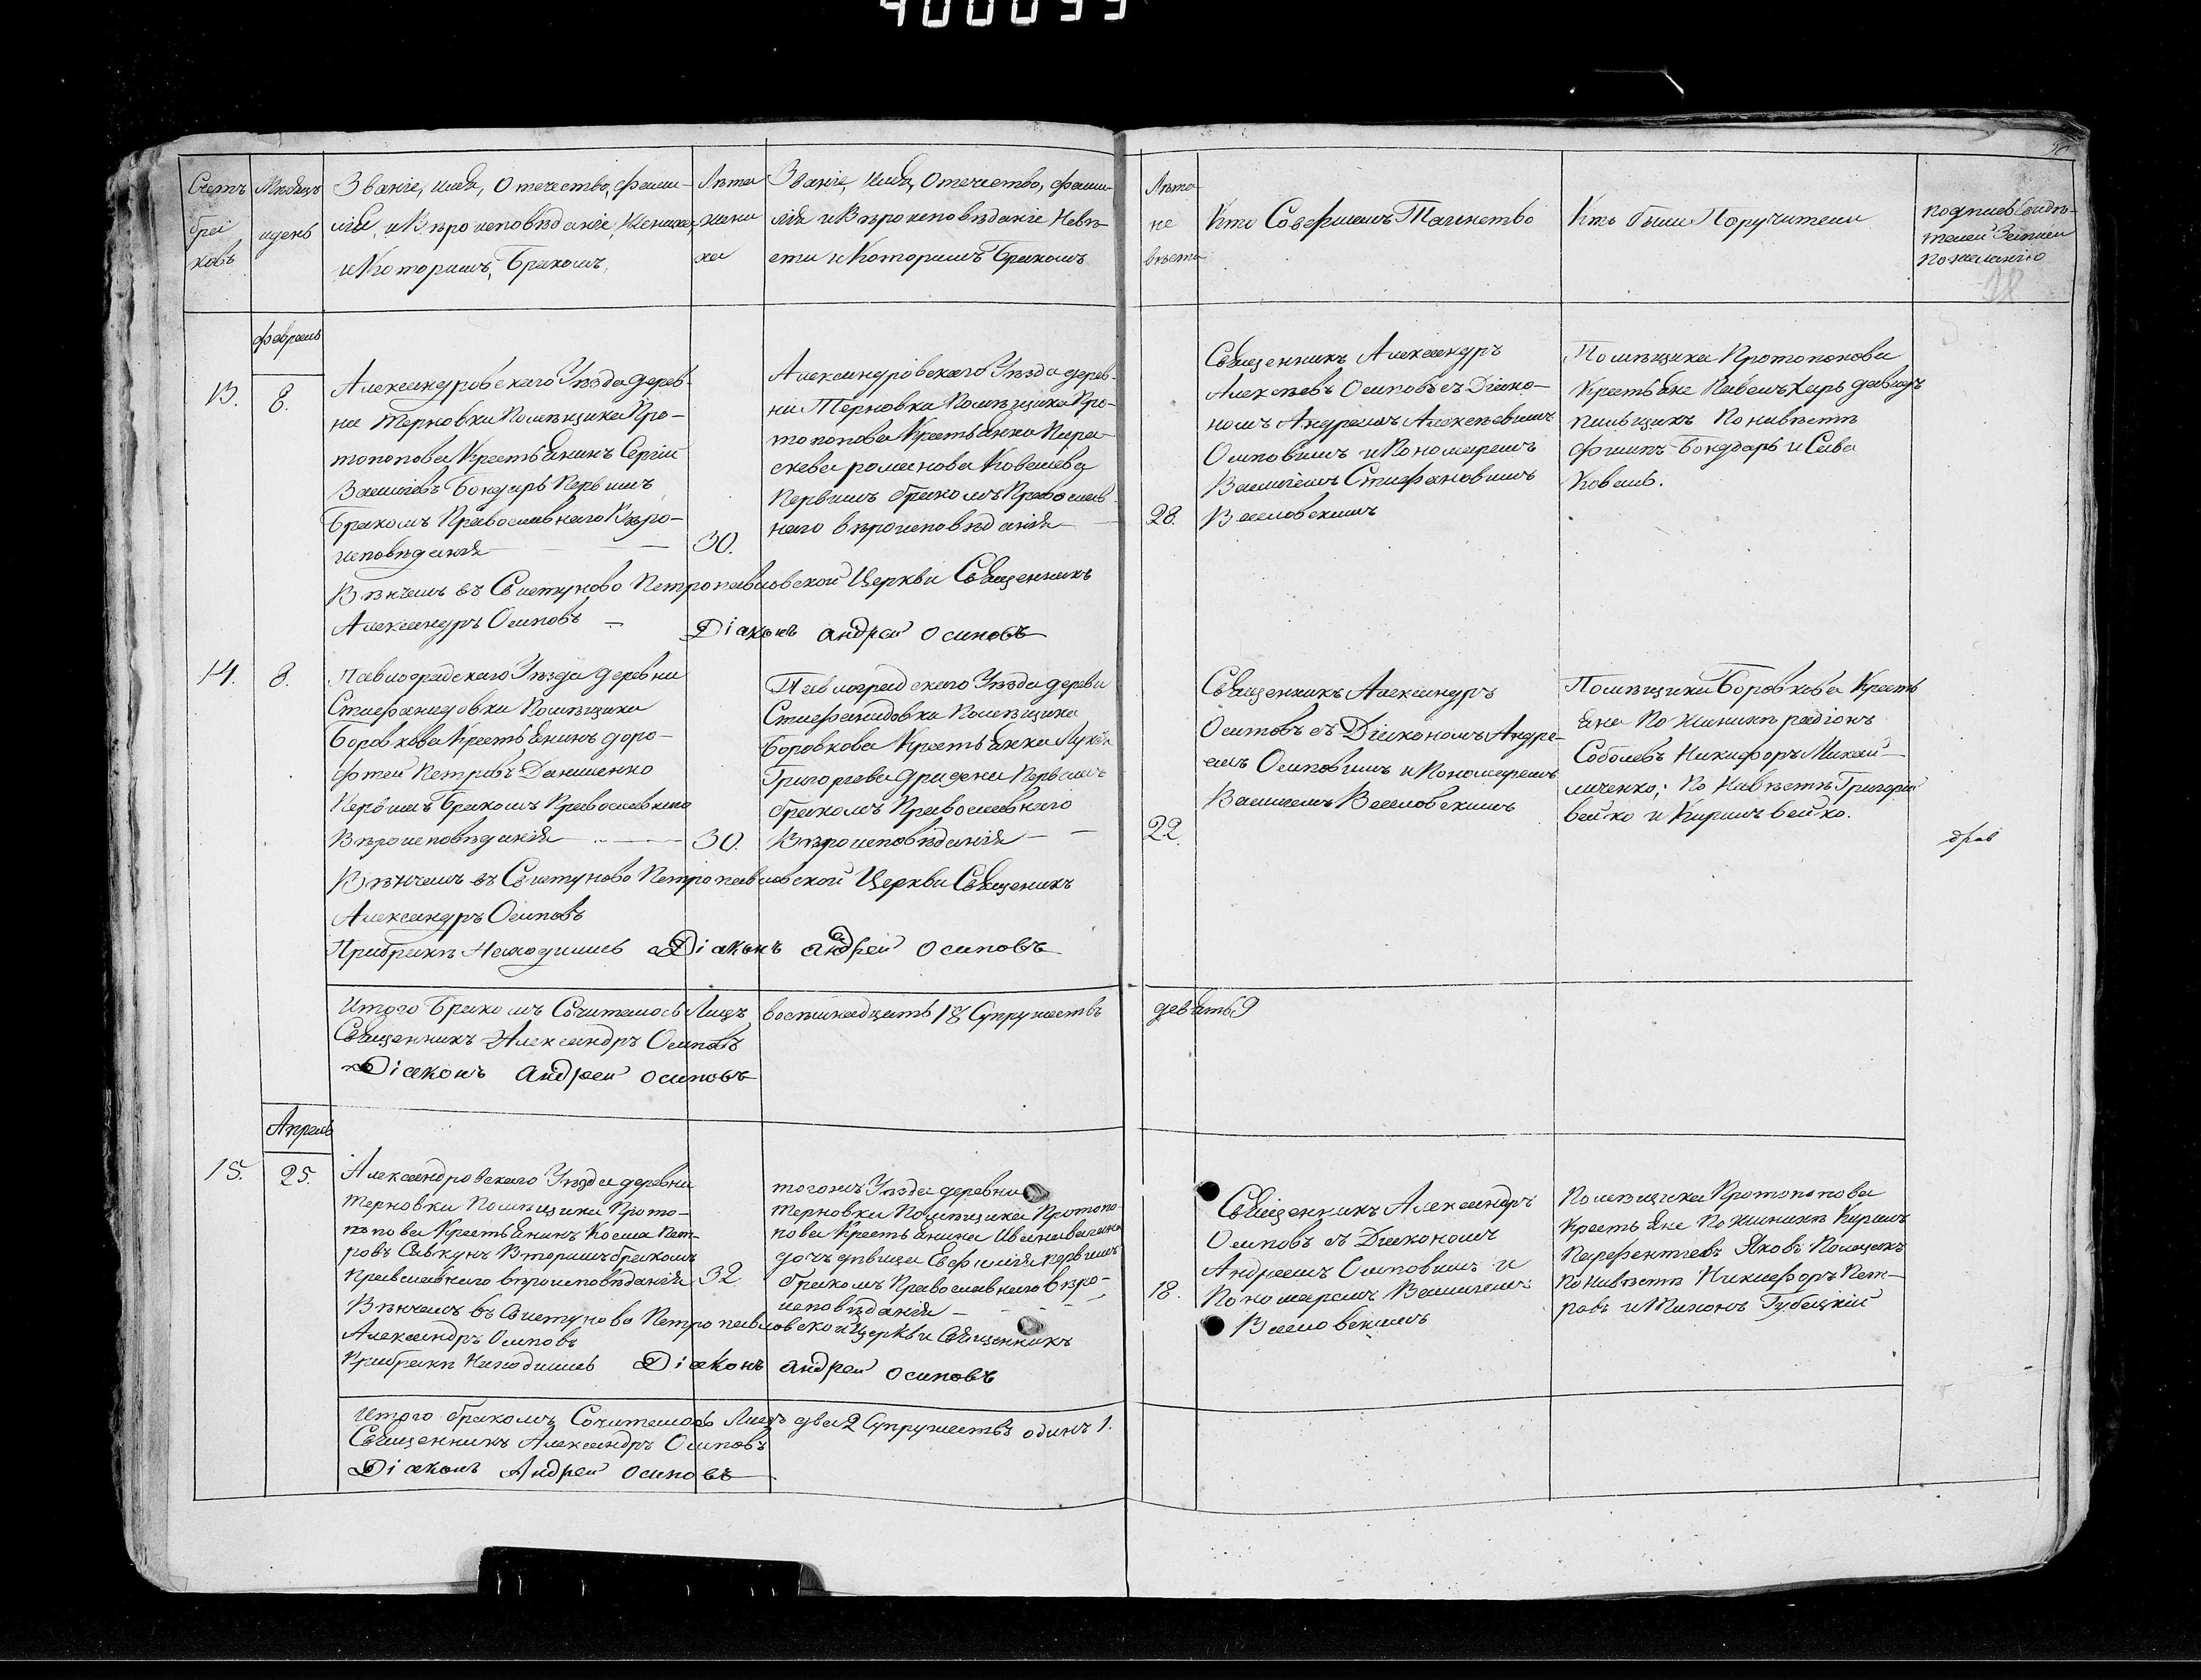 400099
Счетъ браковъ
Мѣсяцъ и день
Званіе, имя, Отечество, фами-
лія, и Вѣроисповѣданіе, Жениха,
и Которымъ, Бракомъ,
Лѣта
жени
ха
Званіе, имя, Отечество, фами-
лія и Вѣроисповѣданіе Невѣ-
сти и Которимъ Бракомъ
Лѣта
не
вѣста
Кто Совершалъ Таинство
Кто были Поручители
подписъ Свидѣ-
телей Записи
по желанію
38
февраль
13.
8.
Александровскаго Уѣзда дерев-
не Терновки Помѣщика Про-
топопова Крестьянинъ Сергій
Василіевъ Бондарь Первимъ
Бракомъ Православнаго Вѣро-
исповѣданія
30.
Александровскаго Уѣзда дерев-
ни Терновки Помѣщика Про-
топопова Крестьянка Пара-
скева романова Ковалева
Первимъ бракомъ Православ-
наго вѣроисповѣданія
28.
Священникъ Александръ
Алексѣевъ Осиповъ съ Діако-
номъ Андреемъ Алексѣевимъ
Осиповимъ и Пономаремъ
Василіемъ Стефановимъ
Веселовскимъ
Помѣщика Протопопова
Крестьяне Павелъ Харь давидъ
пильщикъ По нивѣстѣ
Филипъ Бондарь и Сава
Коваль.
Вѣнчалъ въ Свистуново Петропавловской Церкви Священникъ
Александръ Осиповъ
Діаконъ андрей осиповъ
14.
8.
Павлоградскаго Уѣзда деревни
Стефанидовки Помѣщика
Боровкова Крестьянинъ доро-
фтей Петровъ Даниленко
Первимъ Бракомъ Православнаго
Вѣроисповѣданія
30.
Павлоградскаго Уѣзда деревни
Стефанидовки Помѣщика
Боровкова Крестьянка
Григоріева Первимъ
бракомъ Православнаго
Вѣроисповѣданія
22.
Священникъ Александръ
Осиповъ съ Діакономъ Андре-
емъ Осиповимъ и Пономаремъ
Василіемъ Веселовскимъ
Помѣщика Боровкова Кресть
яне По жинихѣ радіонъ
Соболевъ Никифоръ Михай-
личенко; По Нивѣстѣ Григорій
вейко и Кирилъ вейко.
Вѣнчалъ въ Свистуново Петропавловской Церкви Священикъ
Александръ Осиповъ
При бракѣ Находились Діаконъ андрей осиповъ
Итого Бракомъ Сочиталось Лицъ восимнадцать 18 Супружествъ девять 9
Священникъ Александръ Осиповъ
Діаконъ андрей осиповъ
Апрель
15.
25.
Александровскаго Уѣзда деревни
Терновки Помѣщика Прото-
попова Крестьянинъ Косма Пет-
ровъ Савкунъ Вторимъ бракомъ
Православнаго вѣроисповѣданія
32
тогожъ Уѣзда деревни
Терновки Помѣщика Протопо-
пова Крестьянина Ивана
дочь дѣвица Евфимія первимъ
бракомъ Православнаго вѣро-
исповѣданія
18.
Священникъ Александръ
Осиповъ съ Діакономъ
Андреемъ Осиповимъ и
Пономаремъ Василіемъ
Веселовскимъ
Помѣщика Протопопова
Крестьяне По жинихѣ Кирилъ
Парфентіевъ Яковъ
По нивѣстѣ Никифоръ Пет-
ровъ и Тихонъ Губицкій
Вѣнчалъ въ Свистуново Петропавловской Церкви Священникъ
Александръ Осиповъ
При бракѣ Находились Діаконъ андрей осиповъ
Итого бракомъ Сочиталось Лицъ два 2 Супружествъ одинъ 1.
Священникъ Александръ Осиповъ
Діаконъ Андрей осиповъ